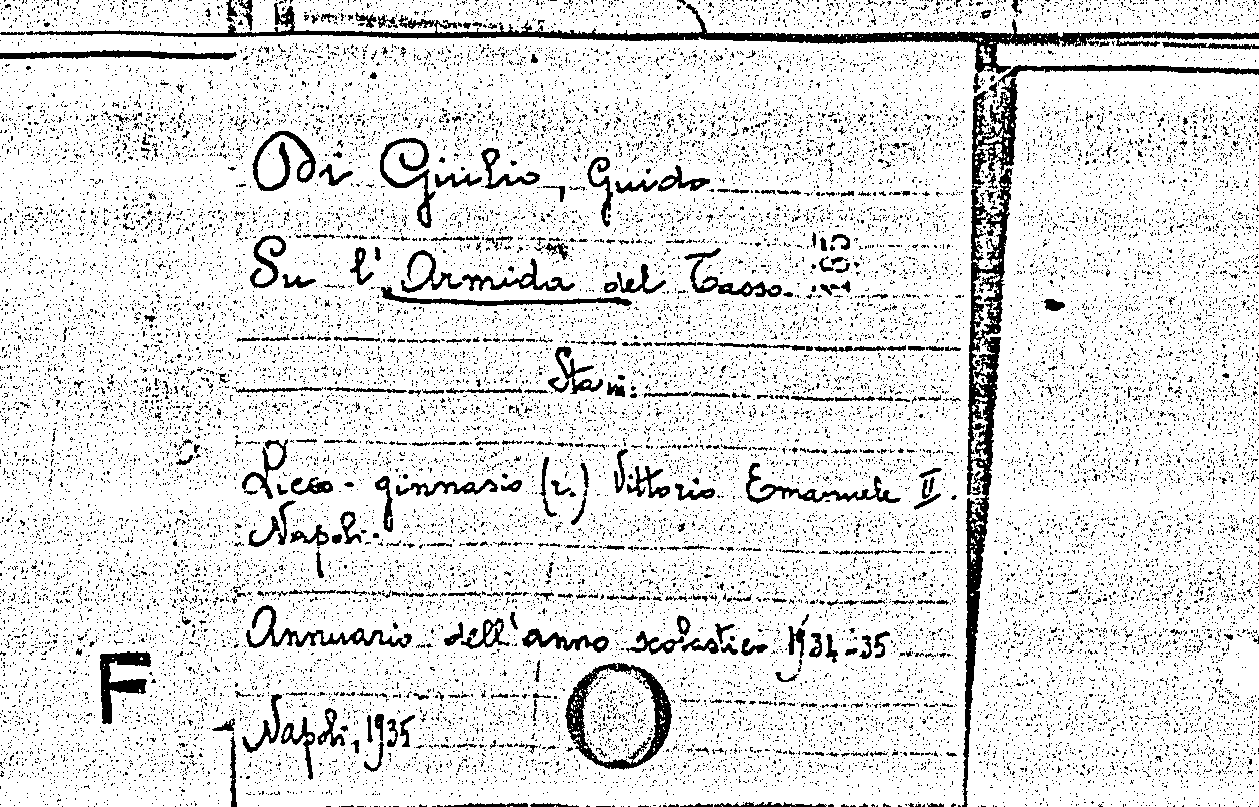 Di Giulio, Guido
Su l'Armida del Tasso.
Sta in:
Liceo-ginnasio (r.) Vittorio Emanuele II.
Napoli.
Annuario dell'anno scolastico 1934-35
Napoli, 1935
F